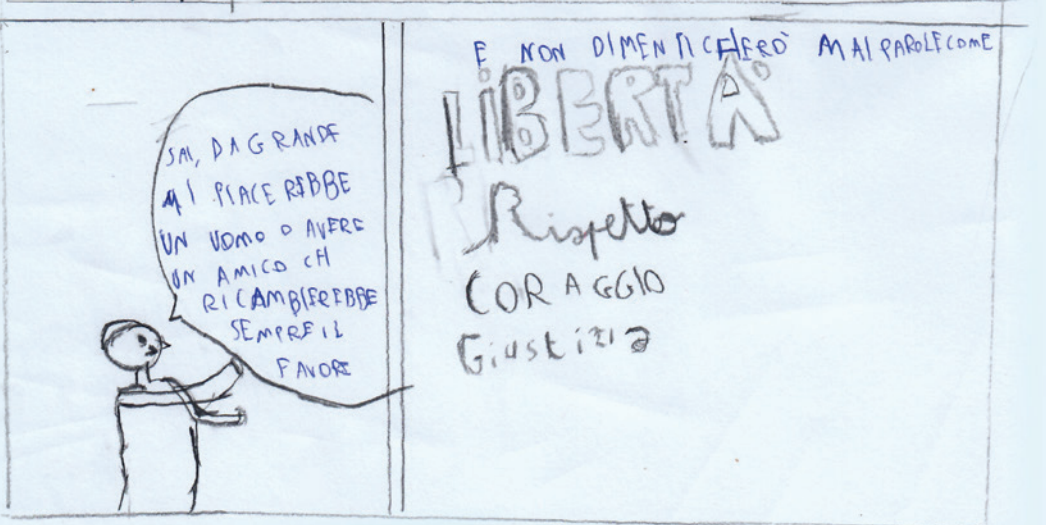 SAI, DA GRANDE
MI PIACEREBBE
UN UOMO O AVERE
UN AMICO CH
RICAMBIEREBBE
SEMPRE IL
FAVORE
E NON DIMENTICHERÒ MAI PAROLE COME
LIBERTÀ
Rispetto
CORAGGIO
Giustizia